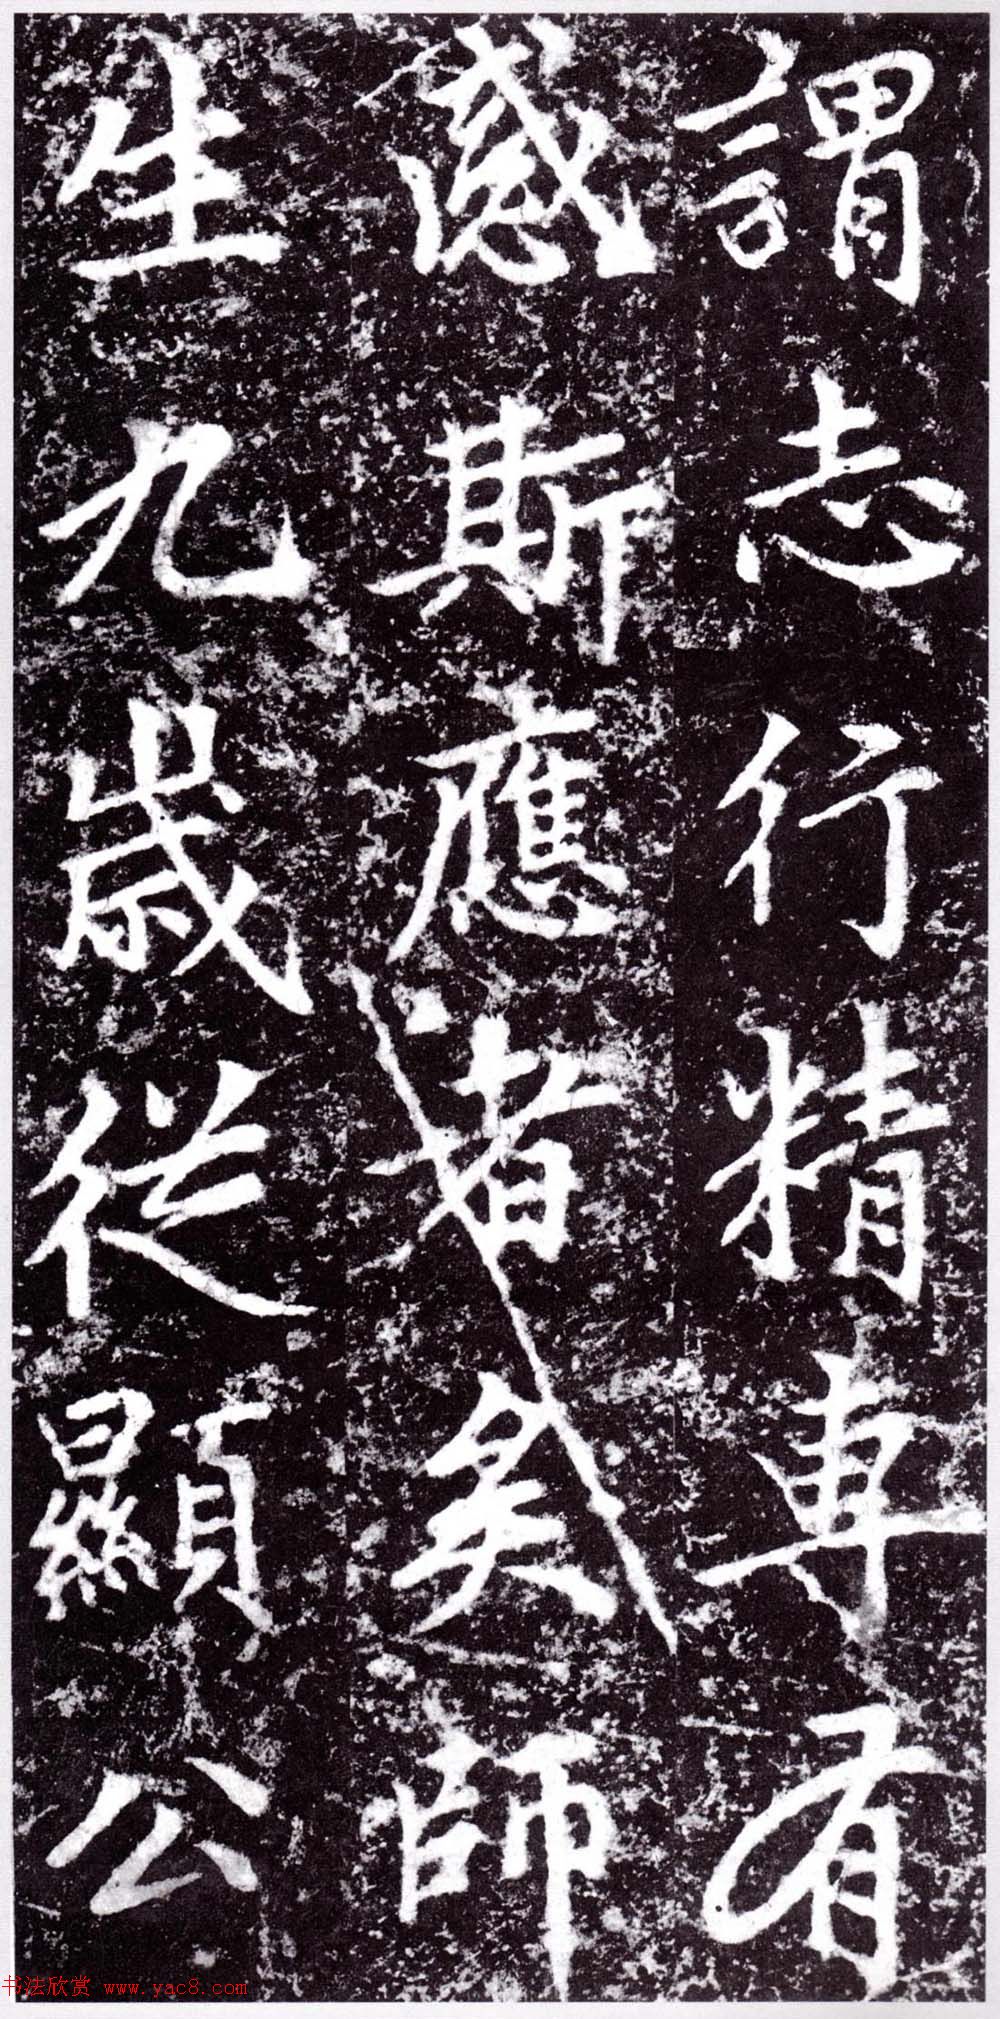 謂志行精專有
感斯應者矣師
生九歲從顯公
书法欣赏 www.yac8.com